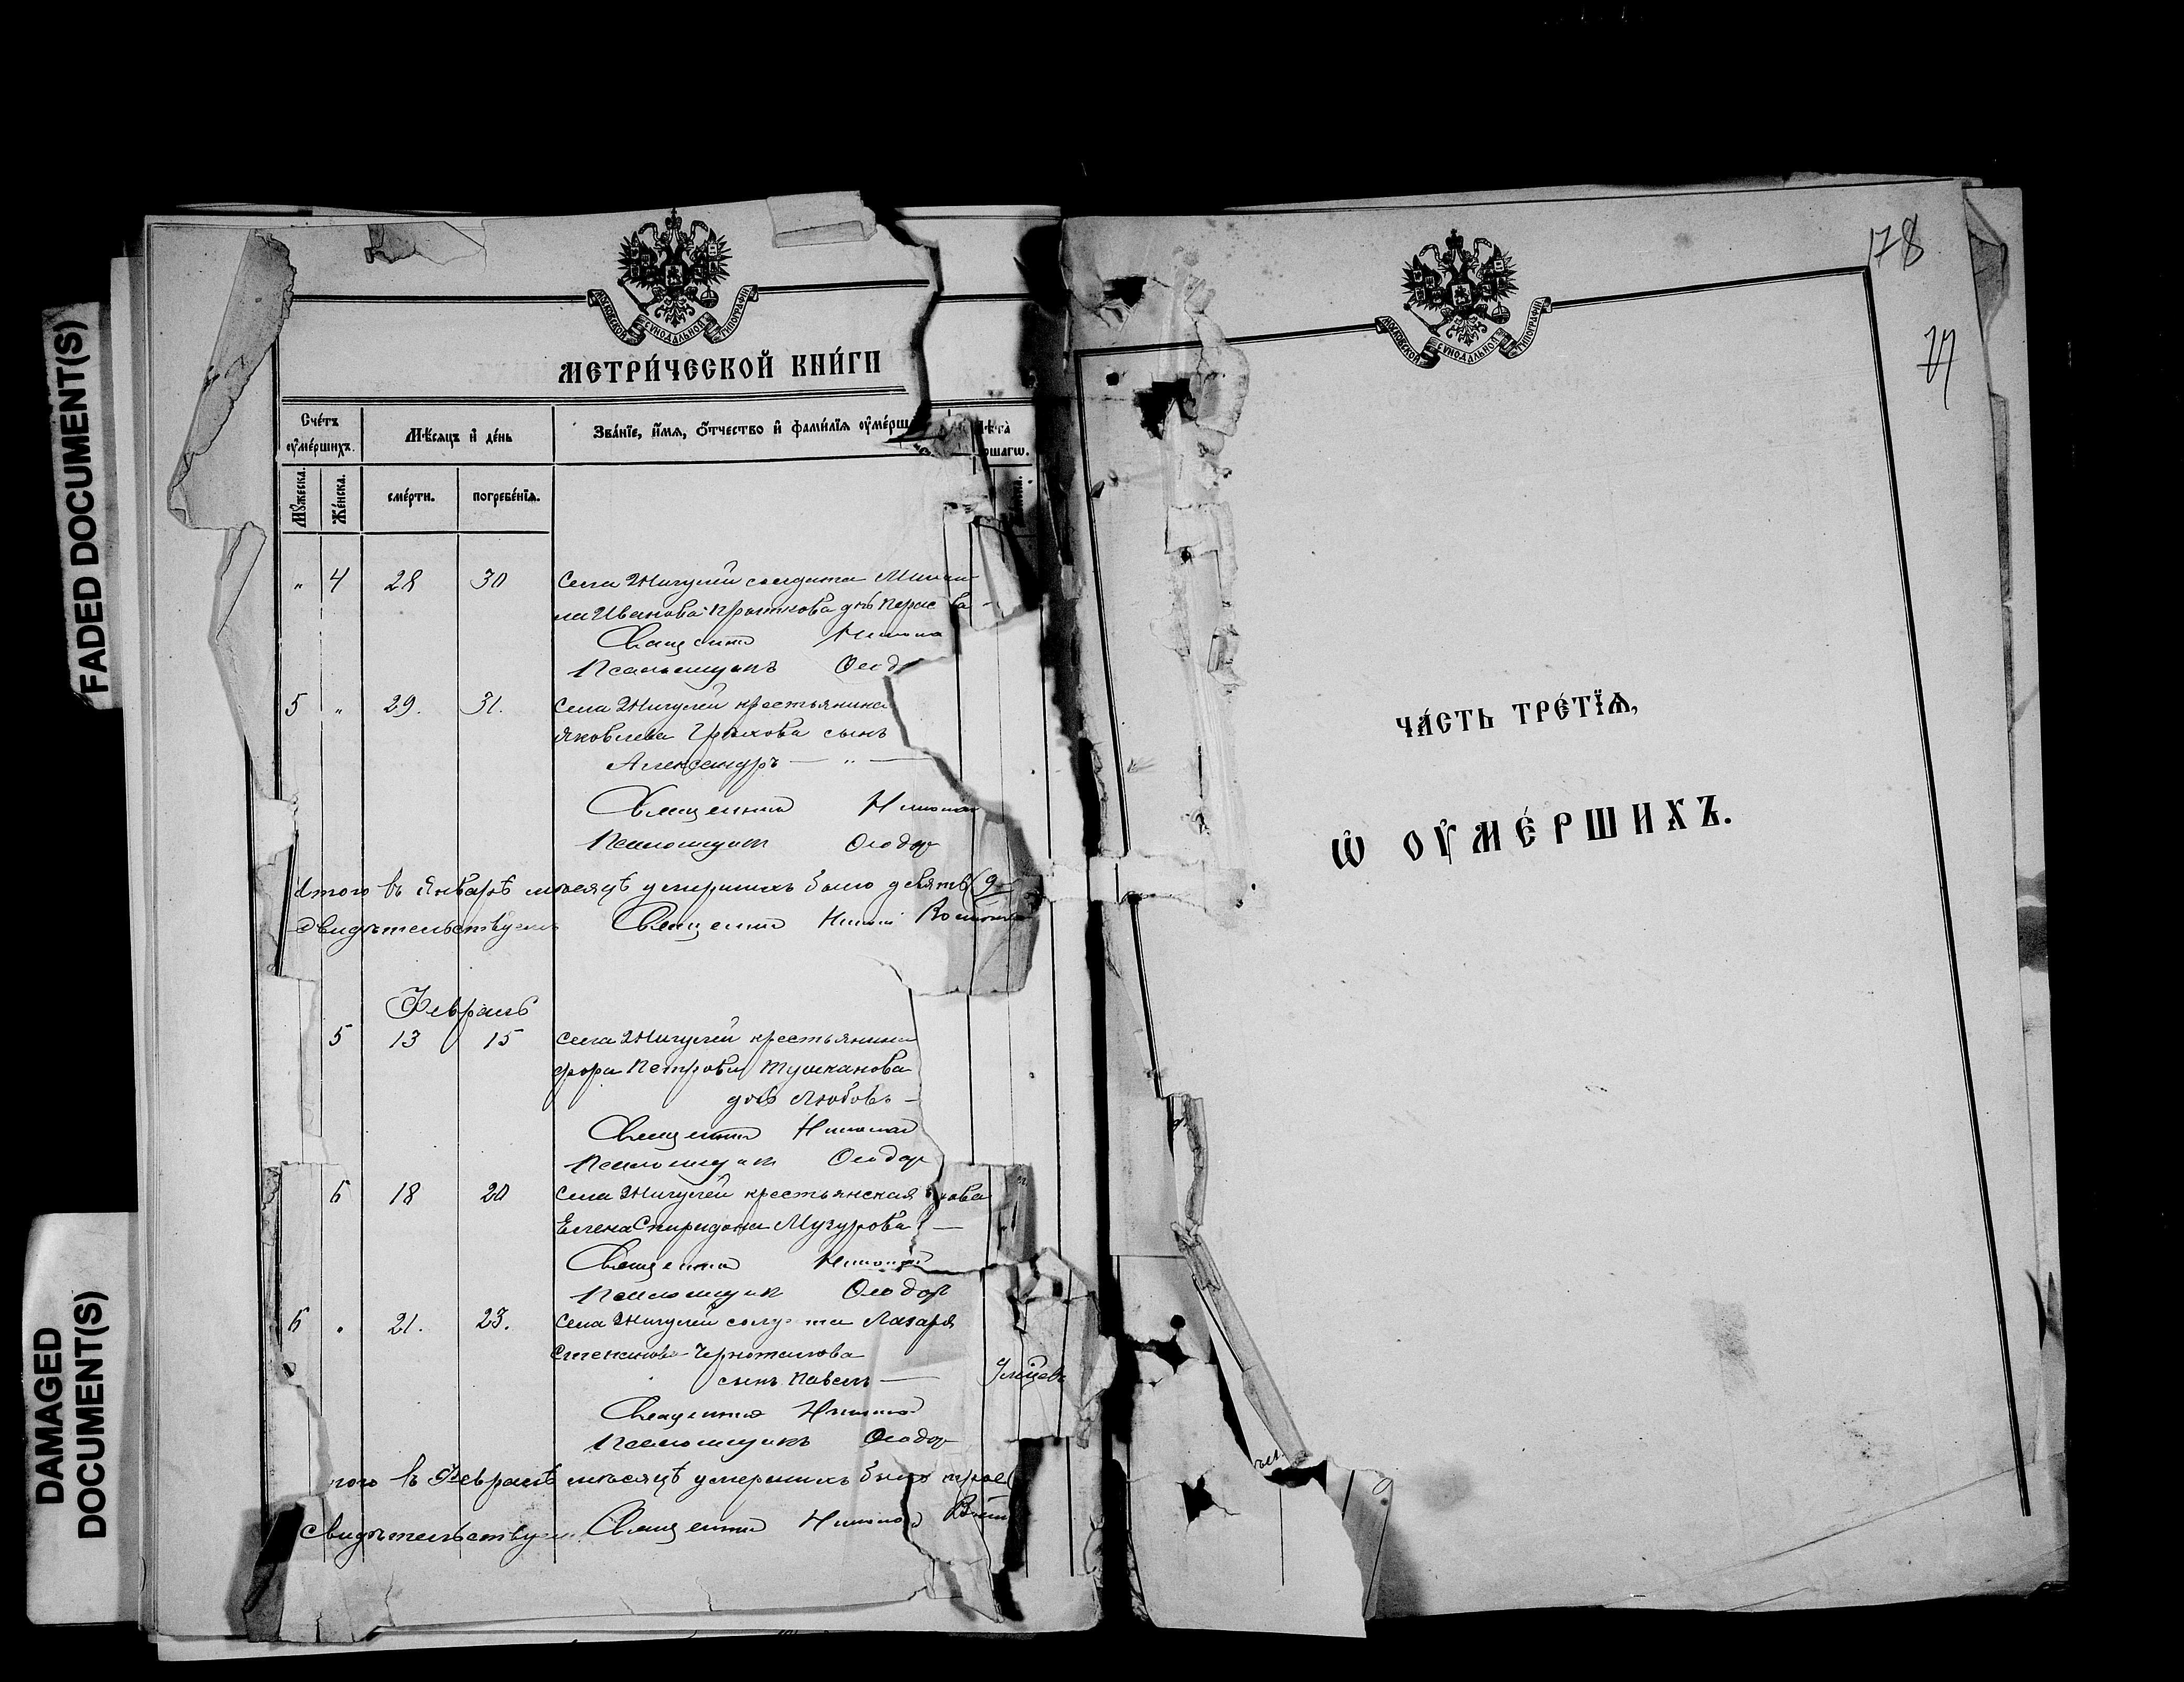 FADED DOCUMENT(S)
DAMAGED
DOCUMENT(S)
МОСКОВСКОЙ СѴНОДАЛЬНОЙ ТИПОГРАФІИ
МЕТРИ́ЧЕСКОЙ КНИ́ГИ
Сче́тъ
оумéршихъ.
Мѣ́сяцъ и де́нь
Зва́нїе, и́мя, о́тчество и фами́лїя оумéрш
Лѣта̀
ршагѡ.
Мꙋ́жеска.
Же́нска.
смéрти.
погребéнїя.
„ 4 28 30 Села Жигулей солдата Михаи
ла Иванова
Священник Никола
Псаломщикъ Ѳеод
5 „ 29. 31. Села Жигулей крестьянина
Яковлева сынъ
Александръ — „ —
Священник Николай
Псаломщик Ѳеодор
Итого въ Январѣ мѣсяцѣ умершихъ было девять (9
Свидѣтельствуем Священник Николай
Февраль
5 13 15 Села Жигулей крестьянина
фора Петрова Тушканова
дочь Любовь —
Священник Николай
Псаломщик Ѳеодор
6 18 20 Села Жигулей крестьянская вдова
Елена Спиридонова —
Священник Николай
Псаломщик Ѳеодор
6 „ 21. 23. Села Жигулей солдата Лазаря
Степанова
сынъ Павелъ —
Священник Николай
Псаломщикъ Ѳеодор
того въ Февралѣ мѣсяцѣ умершихъ было трое (
Свидѣтельствуем Священник Николай
178
МОСКОВСКОЙ СѴНОДАЛЬНОЙ ТИПОГРАФІИ
ЧА́СТЬ ТРЕ́ТЇѦ,
Ѡ ОУ҆МЕ́РШИХЪ.